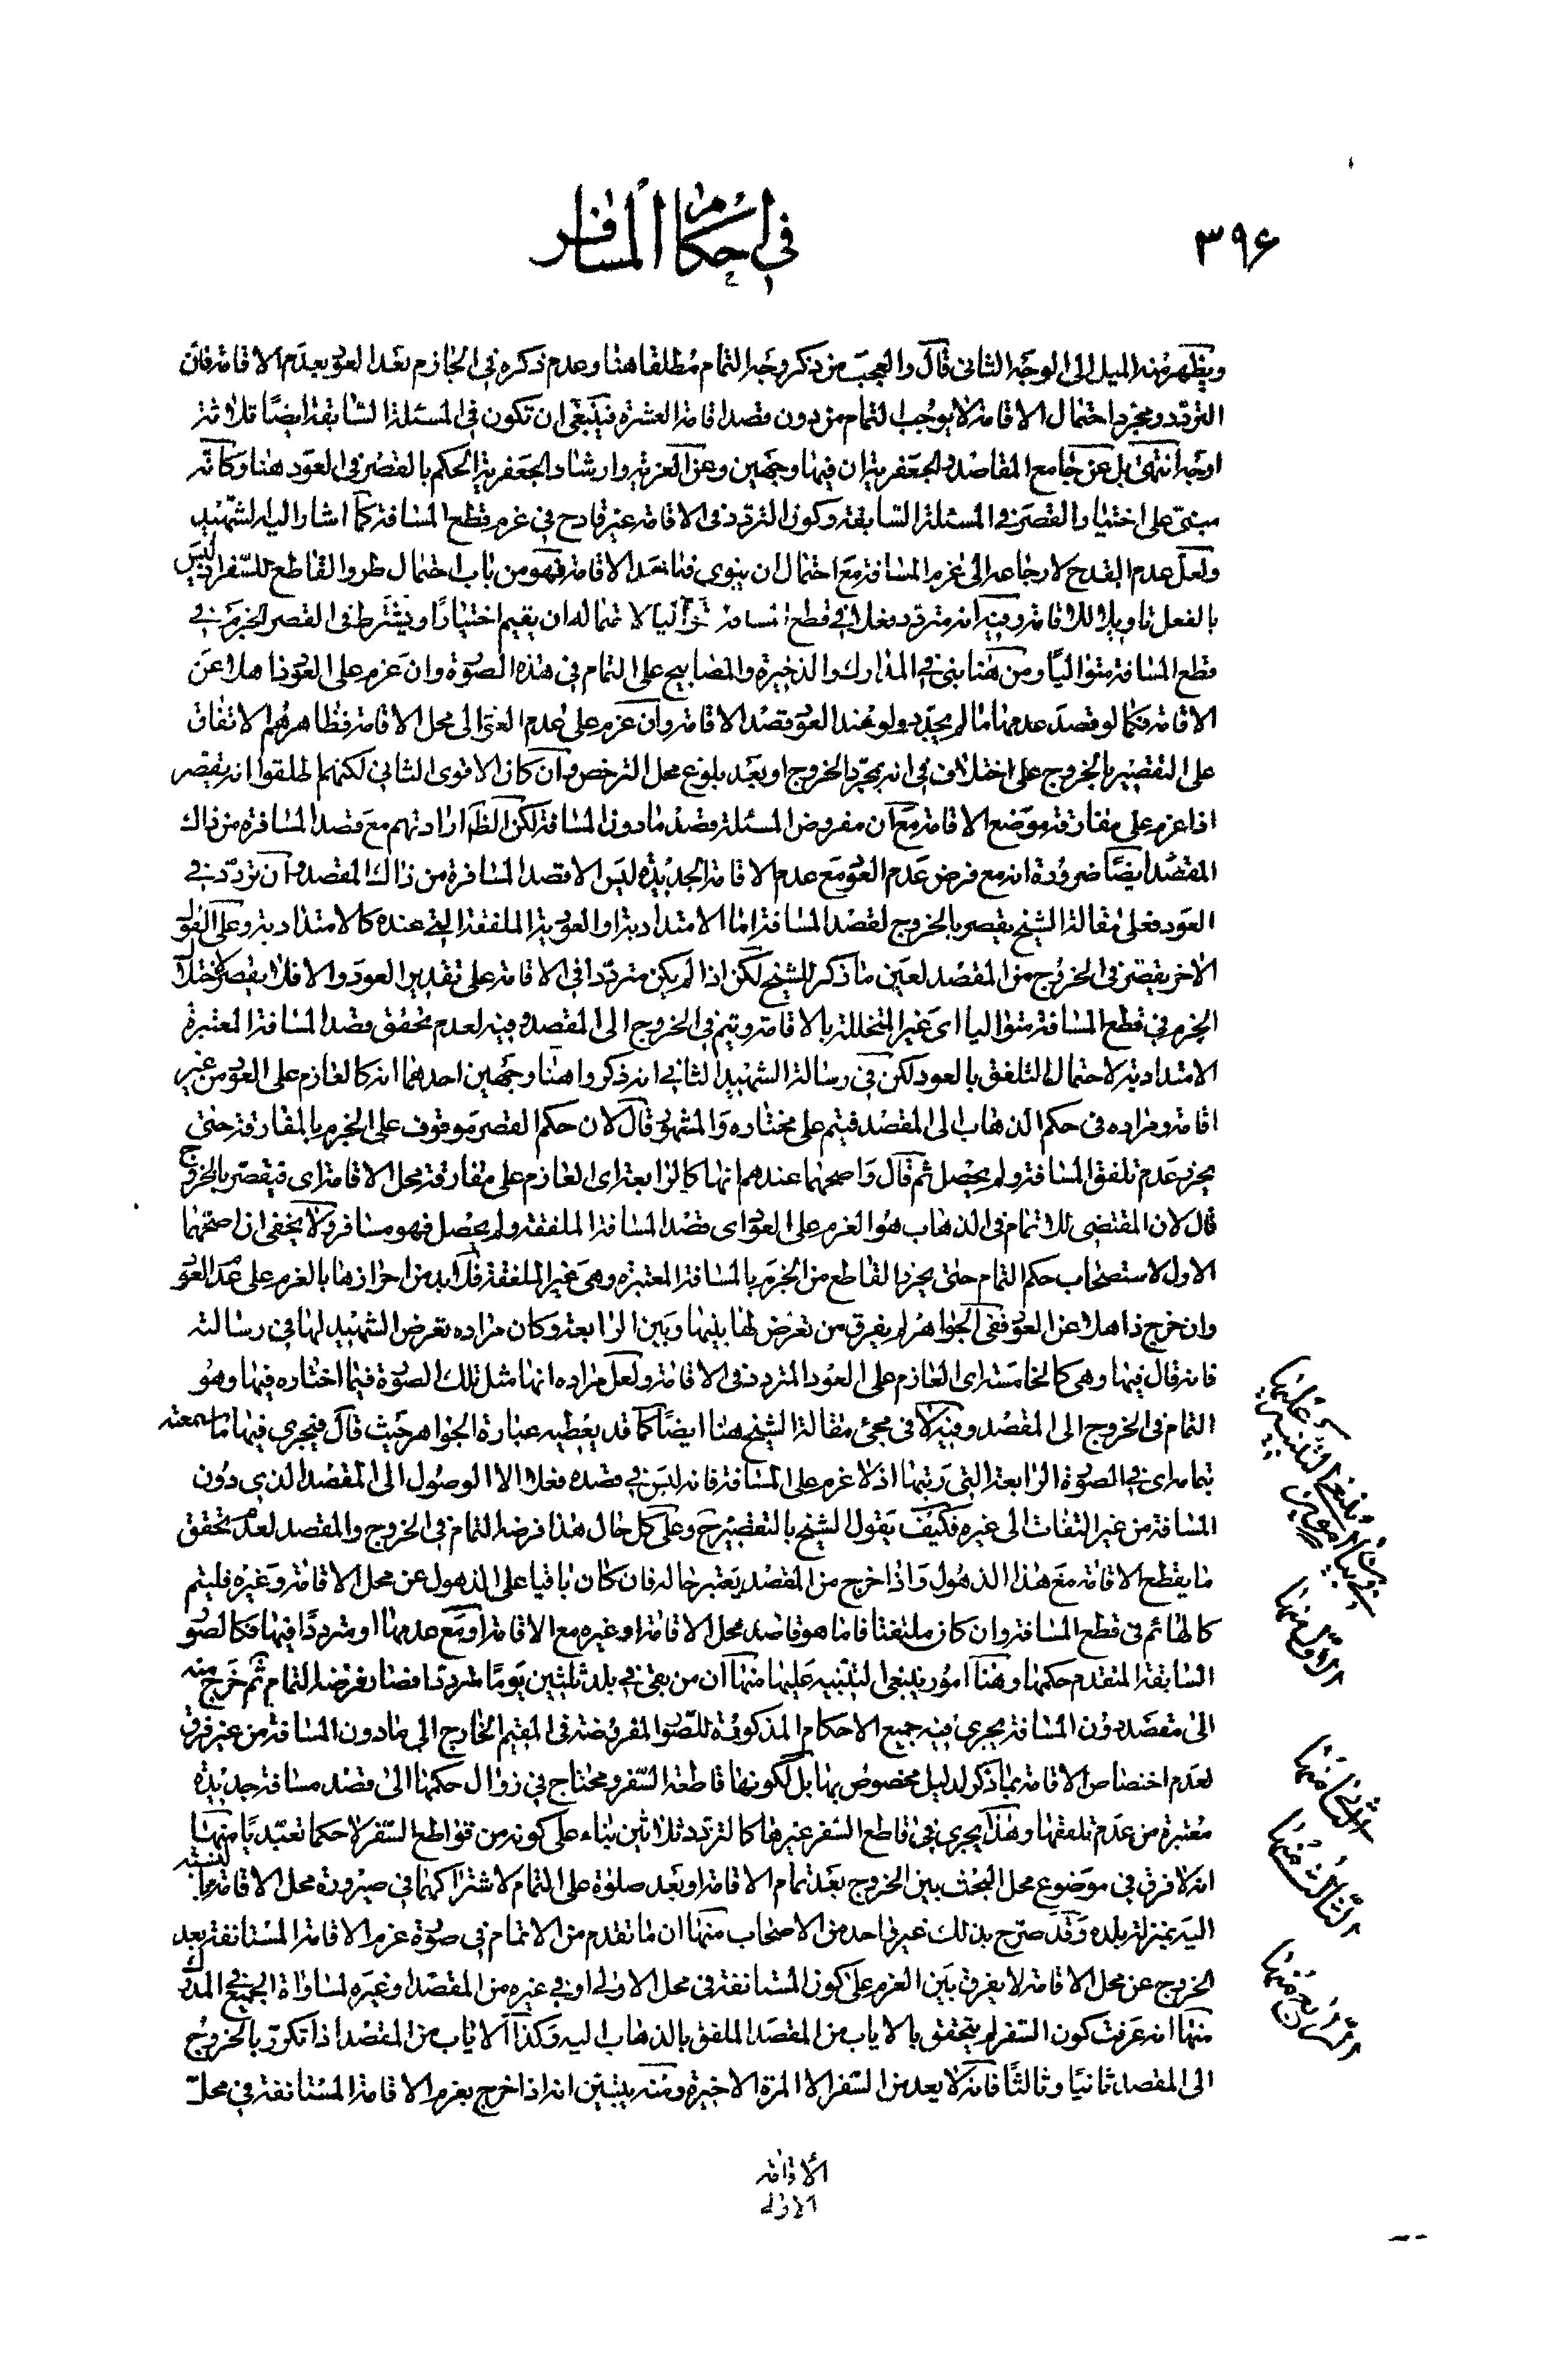 ٣٩۶
في احكام المسافر
ويظهر منه الميل الى الوجه الثانى قال والعجب من ذكر وجه التمام مطلقا هنا وعدم ذكره في الجازم بعد العود بعدم الاقامة فان
التردد ومجرد احتمال الاقامة لا يوجب التمام من دون قصد اقامة العشرة فينبغى ان تكون في المسئلة السابقة ايضا ثلاثة
اوجه انتهى بل عن جامع المقاصد والجعفرية ان فيها وجهين وعن العزية وارشاد الجعفرية الحكم بالقصر في العود هنا وكانه
مبنى على اختيار القصر في المسئلة السابقة وكون التردد في الاقامة غير قادح في عزم قطع المسافة كما اشار اليه الشهيد
ولعل عدم القدح لارجاعه الى عزم المسافة مع احتمال ان ينوى فيما بعد الاقامة فهو من باب احتمال طرو القاطع للسفر اذ ليس
بالفعل ناويا للاقامة وفيه انه متردد فعلا في قطع المسافة متواليا لاحتماله ان يقيم اختيارا ويشترط في القصر الجزم في
قطع المسافة متواليا ومن هنا بنى في المدارك والذخيرة والمصابيح على التمام في هذه الصورة وان عزم على العود ذاهلا عن
الاقامة فكما لو قصد عدمها ما لم يجدد ولو عند العود قصد الاقامة وان عزم على عدم العود الى محل الاقامة فظاهرهم الاتفاق
على التقصير بالخروج على اختلاف في انه بمجرد الخروج او بعد بلوغ محل الترخص وان كان الاقوى الثاني لكنهم اطلقوا انه يقصر
اذا عزم على مفارقة موضع الاقامة مع ان مفروض المسئلة قصد ما دون المسافة لكن الظ ارادتهم مع قصد المسافرة من ذاك
المقصد ايضا ضرورة انه مع فرض عدم العود مع عدم الاقامة الجديدة ليس الا قصد المسافرة من ذاك المقصد وان تردد في
العود فعلى مقالة الشيخ يقصر بالخروج لقصد المسافة اما الامتدادية او العودية الملفقة التي عنده كالامتدادية وعلى القول
الاخر يقصر في الخروج من المقصد لعين ما ذكر للشيخ لكن اذا لم يكن مترددا في الاقامة على تقدير العود والا فلا يقصر لاختلال
الجزم في قطع المسافة متواليا اى غير المتخللة بالاقامة ويتم في الخروج الى المقصد وفيه لعدم تحقق قصد المسافة المعتبرة
الامتدادية لاحتمال التلفق بالعود لكن في رسالة الشهيد الثاني انه ذكروا هنا وجهين احدهما انه كالعازم على العود من غير
اقامة ومراده في حكم الذهاب الى المقصد فيتم على مختاره والمشهور قال لان حكم القصر موقوف على الجزم بالمفارقة حتى
يجزم عدم تلفق المسافة ولم يحصل ثم قال واصحهما عندهم انها كالرابعة اى العازم على مفارقة محل الاقامة اى فيقصر بالخروج
قال لان المقتضى للاتمام في الذهاب هو العزم على العود اى قصد المسافة الملفقة ولم يحصل فهو مسافر ولا يخفى ان اصحهما
الاول لاستصحاب حكم التمام حتى يحرز القاطع من الجزم بالمسافة المعتبرة وهى غير الملفقة فلا بد من احرازها بالعزم على عدم العود
وان خرج ذاهلا عن العود ففى الجواهر لم يفرق من تعرض لها بينها وبين الرابعة وكان مراده تعرض الشهيد لها في رسالته
فانه قال فيها وهى كالخامسة اى العازم على العود المتردد في الاقامة ولعل مراده انها مثل تلك الصورة فيما اختاره فيها وهو
التمام في الخروج الى المقصد وفيه لا في مجئ مقالة الشيخ هنا ايضا كما قد يعطيه عبارة الجواهر حيث قال فيجرى فيها ما سمعته
بتمامه اى في الصورة الرابعة التي رتبها اذ لا عزم على المسافة فانه ليس في قصده فعلا الا الوصول الى المقصد الذي دون
المسافة من غير التفات الى غيره فكيف يقول الشيخ بالتقصير ح وعلى كل حال هذا فرضه التمام في الخروج والمقصد لعدم تحقق
ما يقطع الاقامة مع هذا الذهول واذا خرج من المقصد يعتبر حاله فان كان باقيا على الذهول عن محل الاقامة وغيره فليتم
كالهائم في قطع المسافة وان كان ملتفتا فاما هو قاصد محل الاقامة او غيره مع الاقامة او مع عدمها او مترددا فيها فكالصور
السابقة المتقدم حكمها وهنا امور ينبغى التنبيه عليها منها ان من بقى في بلد ثلثين يوما مترددا فصار فرضه التمام ثم خرج منه
الى مقصد دون المسافة يجرى فيه جميع الاحكام المذكورة للصور المفروضة في المقيم الخارج الى ما دون المسافة من غير فرق
لعدم اختصاص الاقامة بما ذكر لدليل مخصوص بها بل لكونها قاطعة السفر ومحتاج في زوال حكمها الى قصد مسافة جديدة
معتبرة من عدم تلفقها وهذا يجرى في قاطع السفر غيرها كالتردد ثلاثين بناء على كونه من قواطع السفر لا حكما تعبديا منها
انه لا فرق في موضوع محل البحث بين الخروج بعد تمام الاقامة او بعد صلوة على التمام لاشتراكهما في صيرورة محل الاقامة بالنسبة
اليه بمنزلة بلده وقد صرح بذلك غير واحد من الاصحاب منها ان ما تقدم من الاتمام في صورة عزم الاقامة المستانفة بعد
الخروج عن محل الاقامة لا يفرق بين العزم على كون المستانفة في محل الاولى او في غيره من المقصد او غيره لمساواة الجميع في المدرك
منها انه عرفت كون السفر لم يتحقق بالاياب من المقصد الملفق بالذهاب اليه وكذا الاياب من المقصد اذا تكرر بالخروج
الى المقصد ثانيا وثالثا فانه لا يعد من السفر الا المرة الاخيرة ومنه يتبين انه اذا خرج بعزم الاقامة المستانفة في محل
الاقامة
الاولى
الاول منها
الثانى منها
الثالث منها
الرابع منها